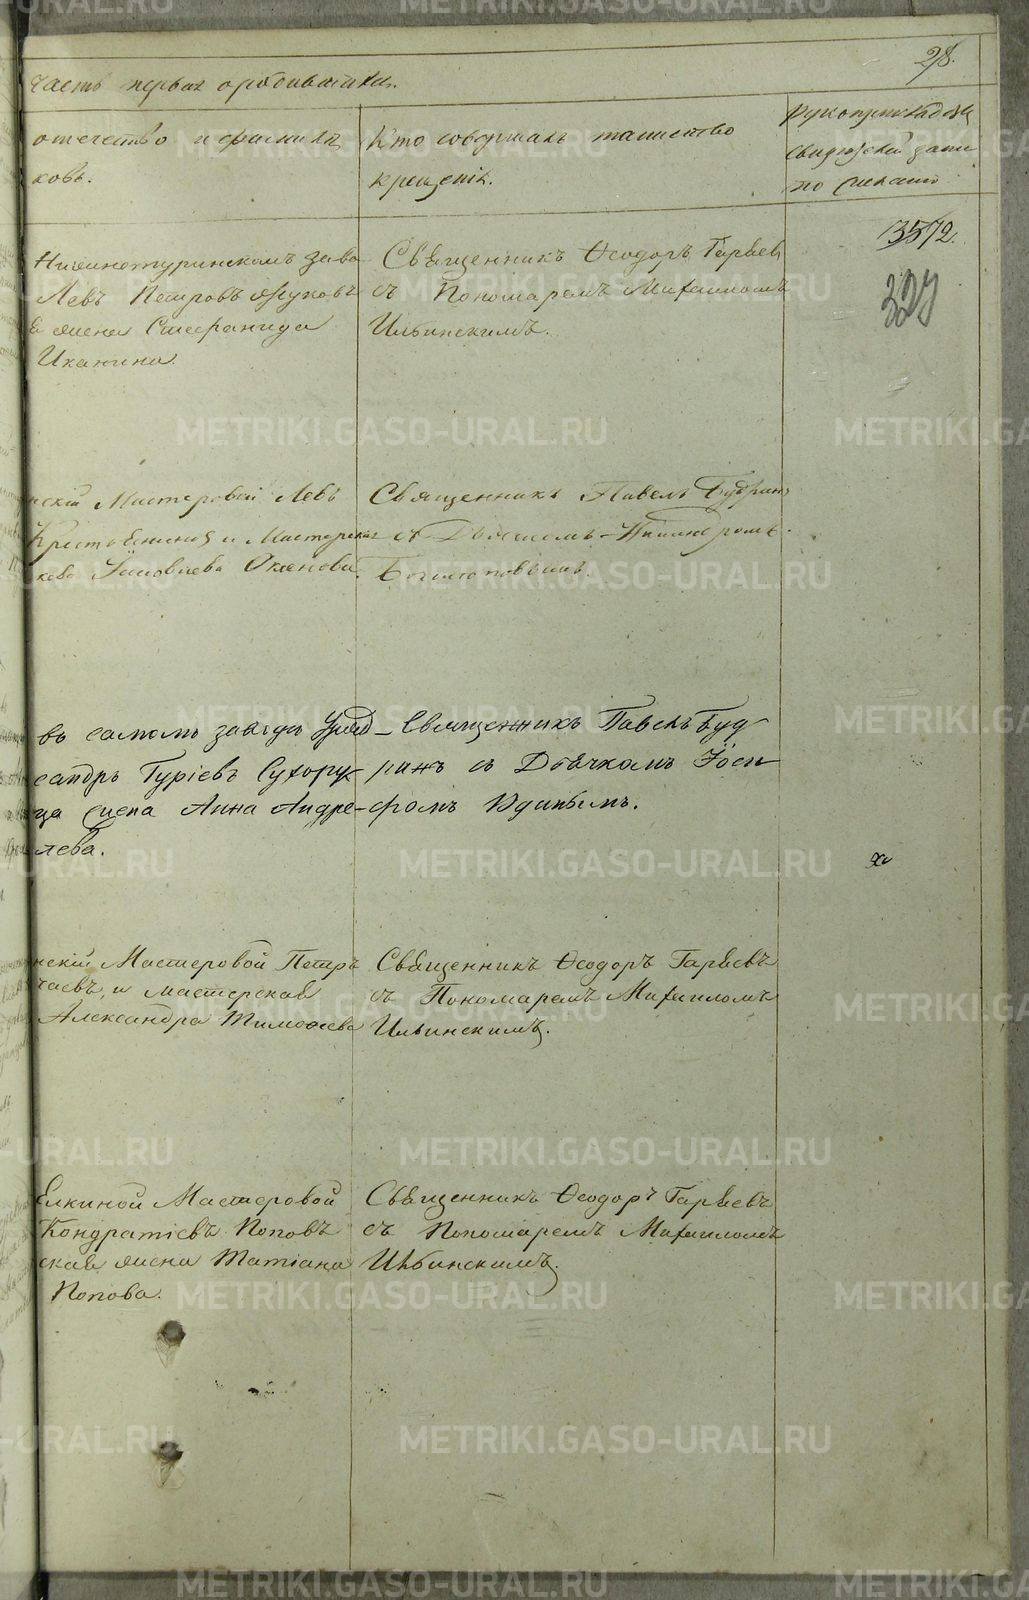 28.
Часть первая о родившихся.
отчество и фамилія
ковъ.
Кто совершалъ таинство
крещенія.
Рукоприкладства
свидѣтелей записи
по желанію
Нижнетуринскомъ заво
Левъ Петровъ Жуковъ
жена Стефанида
Иканина.
Священникъ Ѳеодоръ Гаряев
съ Пономаремъ Михаиломъ
Ильинскимъ.
3572.
327
нскій Мастеровой Левъ
и Мастерская
Священникъ Павелъ Будрин
съ Дьячкомъ
въ самомъ заводѣ Уряд
сандръ Гуріевъ Сухору
ца жена Анна Андре
лева.
Священникъ Павелъ Буд
ринъ съ Дьячкомъ Іоси
фомъ Удинымъ.
нскій Мастеровой Петръ
чаевъ, и мастерская
Александра Тимоѳеева
Священникъ Ѳеодоръ Гаряевъ
съ Пономаремъ Михаиломъ
Ильинскимъ.
Елкиной Мастеровой
Кондратіевъ Поповъ
ская жена Татіана
Попова.
Священникъ Ѳеодоръ Гаряевъ
съ Пономаремъ Михаиломъ
Ильинскимъ.
METRIKI.GASO-URAL.RU